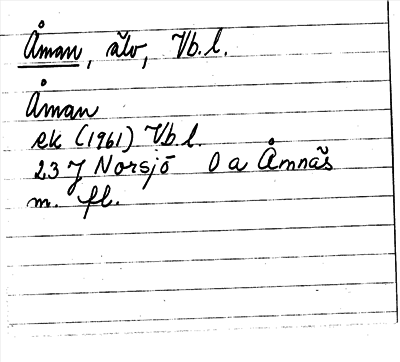 Åman, älv, Vb. l.
Åman
ek (1961) Vb. l.
23 J Norsjö 0 a Åmnäs
m. fl.